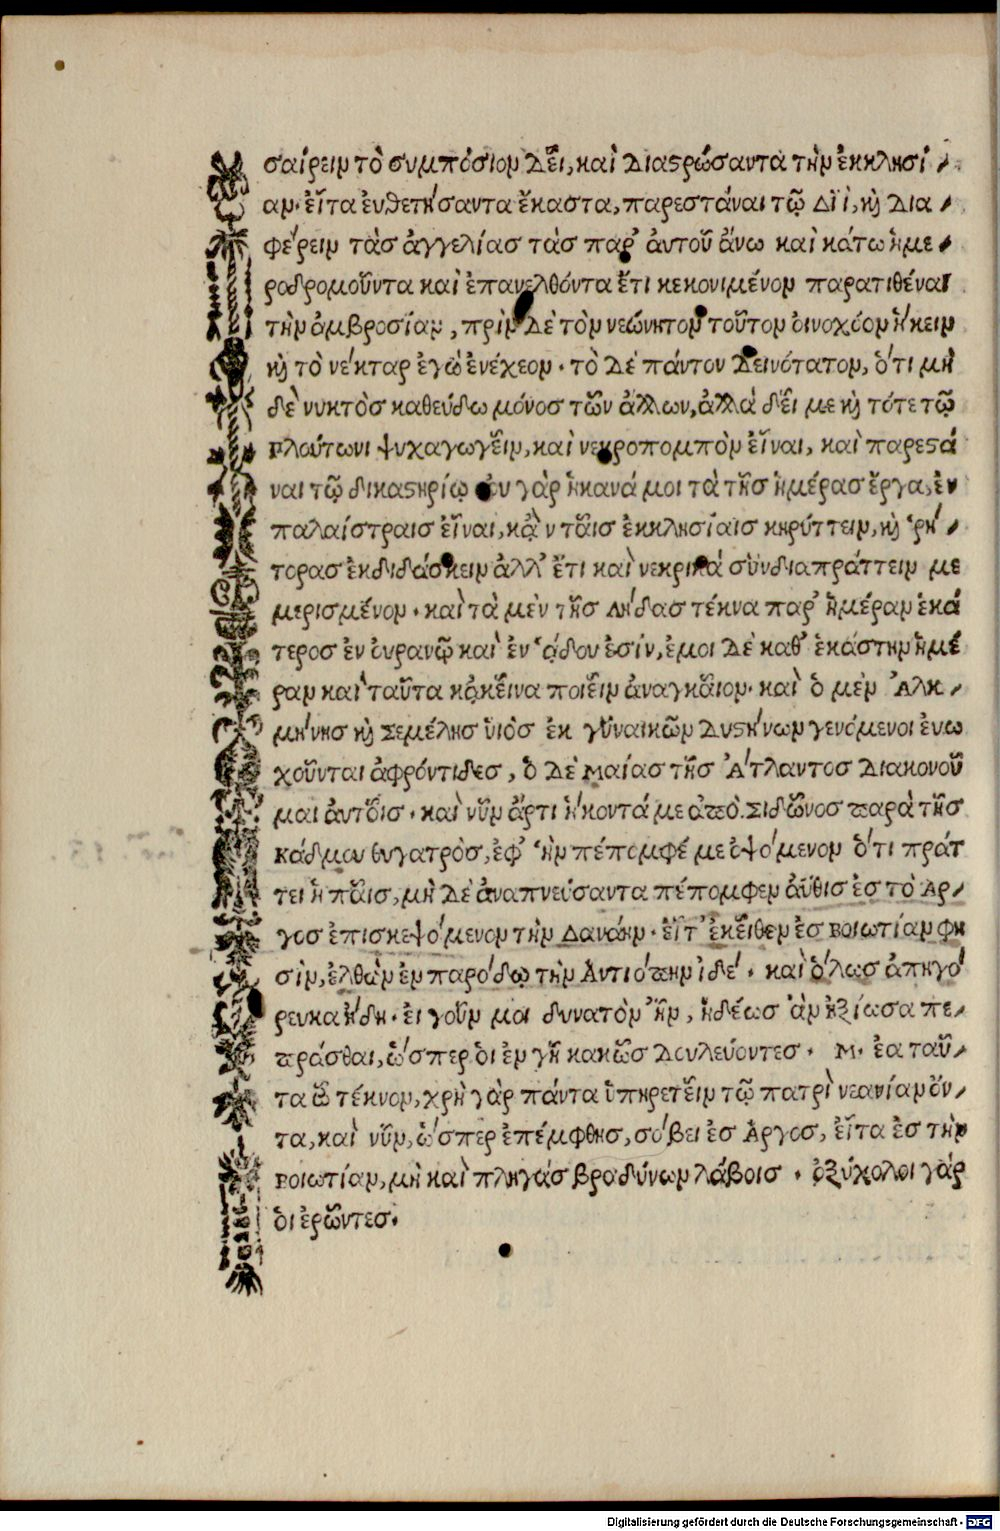 σαίρειν τὸ συμπόσιον δεῖ, καὶ διαϛρώσαντα τὴν ἐκκλησί-
αν. εἶτα ἐυθετήσαντα ἕκαστα, παρεστάναι τῷ Διῒ, ϗ δια-
φέρειν τὰσ ἀγγελίασ τὰσ παρ' ἀυτοῦ ἄνω καὶ κάτω ἡμε-
ροδρομοῦντα καὶ ἐπανελθόντα ἔτι κεκονιμένον παρατιθέναι
τὴν ἀμβροσίαν, πρὶν δὲ τὸν νεώνητον τοῦτον ὀινοχόον ἥκειν
ϗ τὸ νέκταρ ἐγὼ ἐνέχεον. τὸ δὲ πάντον δεινότατον, ὅτι μὴ
δὲ νυκτὸσ καθεύδω μόνοσ τῶν ἄλλων, ἀλλὰ δεῖ με ϗ τότε τῷ
Πλούτωνι ψυχαγωγεῖν, καὶ νεκροπομπὸν εἶναι, καὶ παρεϛά
ναι τῷ δικαϛηρίῳ ὀυ γὰρ ἡκανά μοι τὰ τῆσ ἡμέρασ ἔργα, ἐν
παλαίστραισ εἶναι, κᾂν ταῖσ ἐκκλησίαισ κηρύττειν, ϗ ῥή-
τορασ ἐκδιδάσκειν ἀλλ' ἔτι καὶ νεκρικά σὺνδιαπράττειν με
μερισμένον. καὶ τὰ μὲν τῆσ Λήδασ τέκνα παρ' ἡμέραν ἑκά
τεροσ ἐν ὀυρανῷ καὶ ἐν ᾅδου ἐσίν, ἐμοι δὲ καθ' ἑκάστην ἡμέ
ραν καὶ ταῦτα κᾀκεῖνα ποιεῖν ἀναγκαῖον. καὶ ὁ μὲν Ἀλκ-
μήνησ ϗ Σεμέλησ ὑιὸσ ἐκ γὐναικῶν δυϛήνων γενόμενοι ἐυω
χοῦνται ἀφρόντιδεσ, ὁ δὲ Μαίασ τῆσ Ἀτλαντοσ διακονοῦ
μαι ἀυτοῖσ. καὶ νῦν ἄρτι ἥκοντά με ἀπὸ Σιδῶνοσ παρὰ τῆσ
Κάδμου θυγατρὸσ, ἐφ' ἣν πέπομφέ με ὀψόμενον ὅτι πράτ
τει ἡ παῖσ, μὴ δὲ ἀναπνεύσαντα πέπομφεν αὖθισ ἐσ τὸ Ἀρ-
γοσ ἐπισκεψόμενον τὴν Δανάην. εἶτ' ἐκεῖθεν ἐσ Βοιωτίαν φη
σὶν, ἐλθὼν ἐν παρόδῳ τὴν Ἀντιόπην ἰδέ. καὶ ὅλωσ ἀπηγό
ρευκα ἤδη. ἐι γοῦν μοι δυνατὸν ἦν, ἡδέωσ ἂν ἠξίωσα πε-
πράσθαι, ὥσπερ ὁι ἐν γῆ κακῶσ δουλεύοντεσ. Μ. ἐα ταῦ-
τα ὦ τέκνον, χρὴ γὰρ πάντα ὑπηρετεῖν τῷ πατρὶ νεανίαν ὄν-
τα, καὶ νῦν, ὥσπερ ἐπέμφθησ, σόβει ἐσ Ἀργοσ, εἶτα ἐσ τὴν
Βοιωτίαν, μὴ καὶ πληγάσ βραδύνων λάβοισ. ὀξύχολοι γάρ
ὁι ἐρῶντεσ.
Digitalisierung gefördert durch die Deutsche Forschungsgemeinschaft - DFG